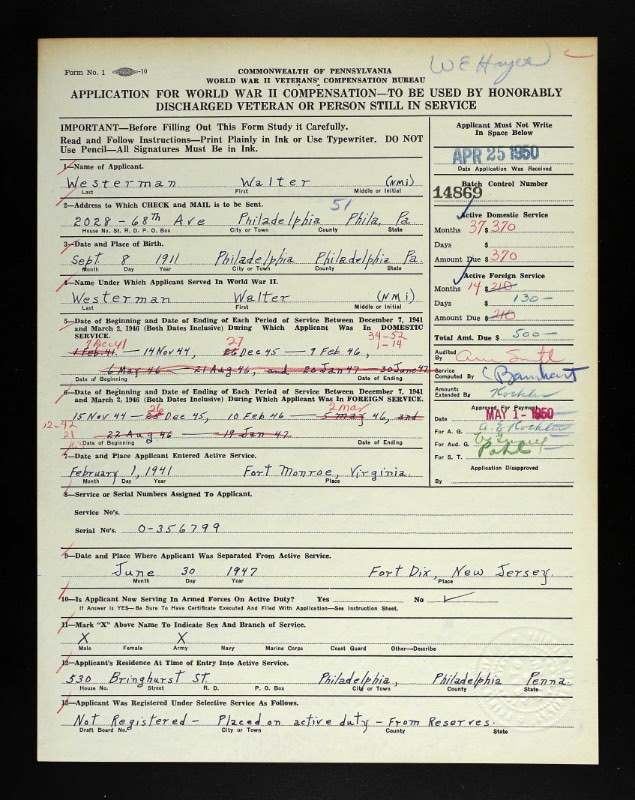 W E Hayes
Form No. 1 -10
COMMONWEALTH OF PENNSYLVANIA
WORLD WAR II VETERANS' COMPENSATION BUREAU
APPLICATION FOR WORLD WAR II COMPENSATION—TO BE USED BY HONORABLY
DISCHARGED VETERAN OR PERSON STILL IN SERVICE
IMPORTANT—Before Filling Out This Form Study it Carefully.
Read and Follow Instructions—Print Plainly in Ink or Use Typewriter. DO NOT
Use Pencil—All Signatures Must Be in Ink.
1—Name of Applicant.
Westerman Walter (NMI)
Last First Middle or Initial
2—Address to Which CHECK and MAIL is to be Sent. 51
2028 - 68th Ave Philadelphia Phila, Pa.
House No. St. R. D. P. O. Box City or Town County State
3—Date and Place of Birth.
Sept. 8 1911 Philadelphia Philadelphia Pa.
Month Day Year City or Town County State
4—Name Under Which Applicant Served In World War II.
Westerman Walter (NMI)
Last First Middle or Initial
5—Date of Beginning and Date of Ending of Each Period of Service Between December 7, 1941
and March 2, 1946 (Both Dates Inclusive) During Which Applicant Was In DOMESTIC
SERVICE. 34-52
7 Dec 41 27 1-14
1 Feb 41 — 14 Nov 44, 26 Dec 45 — 9 Feb 46,
6 May 46 — 21 Aug 46, and 20 Jan 47 — 30 June 47
Date of Beginning Date of Ending
6—Date of Beginning and Date of Ending of Each Period of Service Between December 7, 1941
and March 2, 1946 (Both Dates Inclusive) During Which Applicant Was In FOREIGN SERVICE.
26 2 Mar
15 Nov 44 — Dec 45, 10 Feb 46 — 5 May 46, and
12-42
21
22 Aug 46 — 19 Jan 47
Date of Beginning Date of Ending
7—Date and Place Applicant Entered Active Service.
February 1, 1941 Fort Monroe, Virginia.
Month Day Year Place
8—Service or Serial Numbers Assigned To Applicant.
Service No's.
Serial No's. O-356799
9—Date and Place Where Applicant Was Separated From Active Service.
June 30 1947 Fort Dix, New Jersey.
Month Day Year Place
10—Is Applicant Now Serving In Armed Forces On Active Duty? Yes No ✓
If Answer Is YES—Be Sure To Have Certificate Executed And Filed With Application—See Instruction Sheet.
11—Mark "X" Above Name To Indicate Sex And Branch of Service.
X X
Male Female Army Navy Marine Corps Coast Guard Other—Describe
12—Applicant's Residence At Time of Entry Into Active Service.
530 Bringhurst St. Philadelphia, Philadelphia Penna.
House No. Street R. D. P. O. Box City or Town County State
13—Applicant Was Registered Under Selective Service As Follows.
Not Registered - Placed on active duty - From Reserves.
Draft Board No. City or Town County State
Applicant Must Not Write
In Space Below
APR 25 1950
Date Application Was Received
Batch Control Number
14869
Active Domestic Service
Months 37 $ 370
Days $
Amount Due $ 370
Active Foreign Service
Months 14 $ 210
Days $ 130-
Amount Due $ 210
Total Amt. Due $ 500-
Audited
By
Service
Computed By C Barnhart
Amounts
Extended By
Approved For Payment
Date MAY 1- 1950
For A. G.
For Aud. G.
For S. T.
Application Disapproved
By